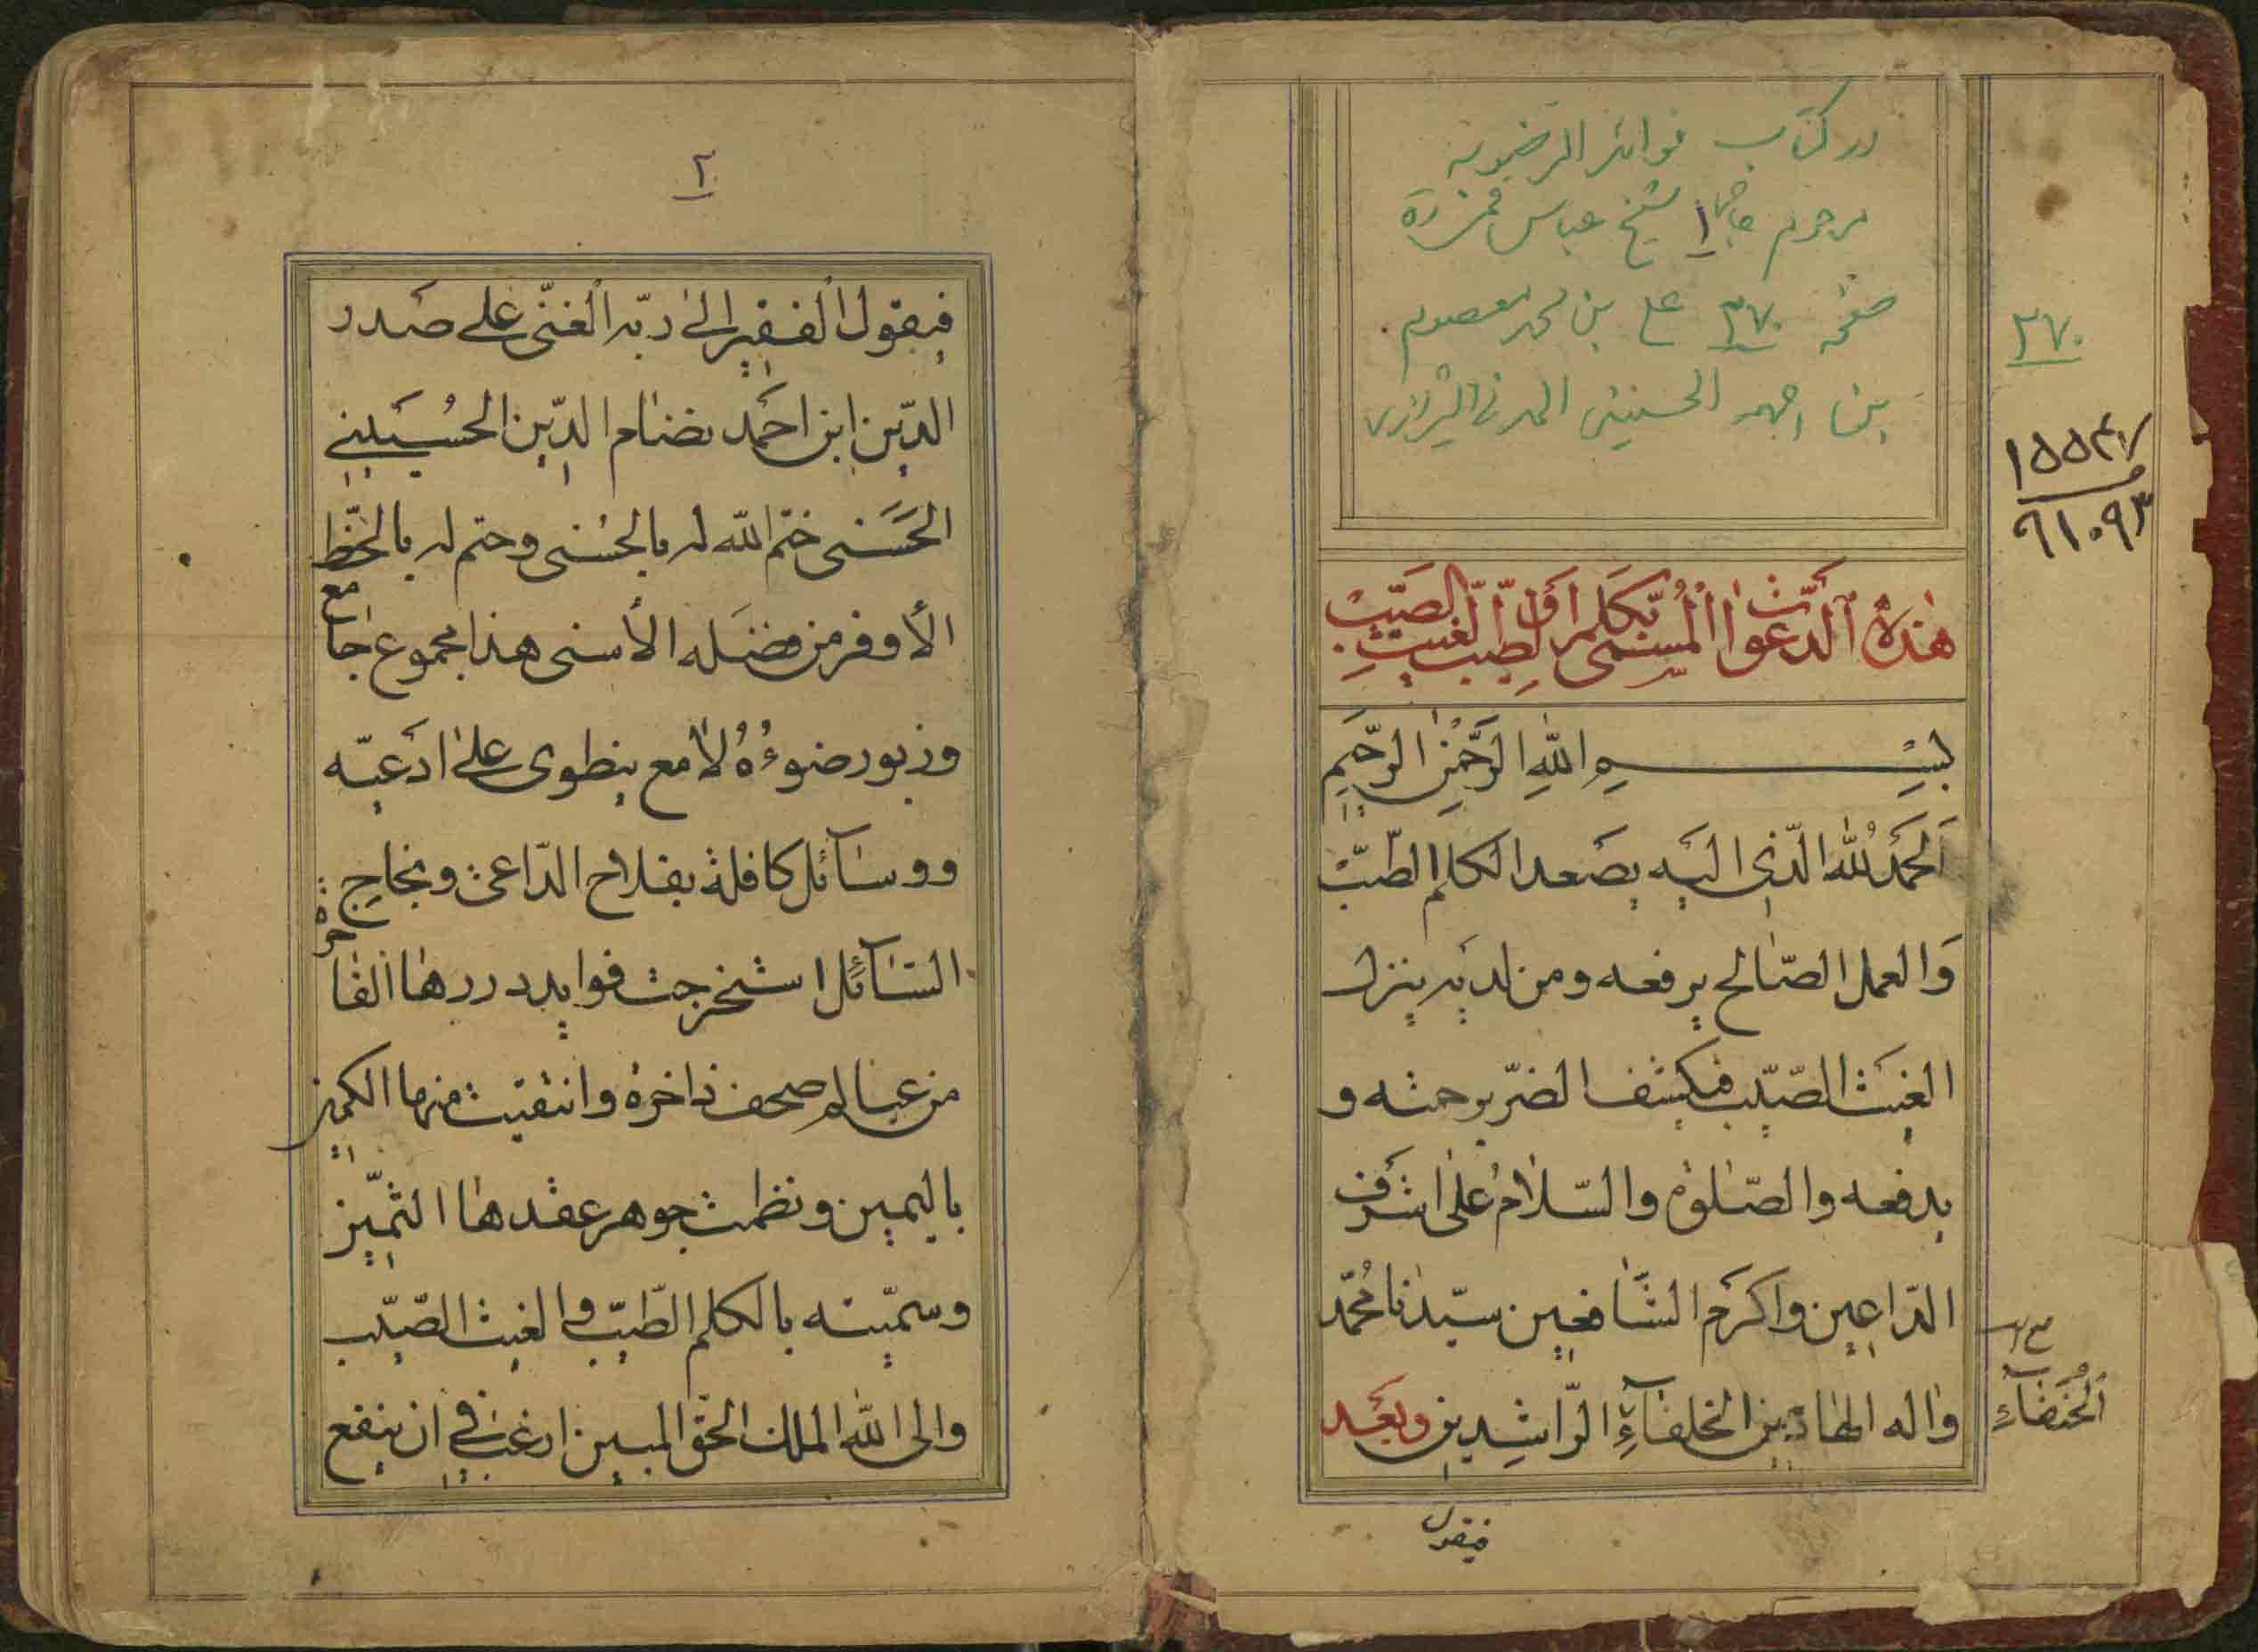 در كتاب فوائد الرضويه
مرحوم حاج شيخ عباس قمی ره
صفحه ٢٧٠ علی بن محمد معصوم
بن احمد الحسينی المدنی الشيرازی
٢٧٠
١٥٥٤٧
٩١٠٩٣
هٰذِهُ الدَّعَواتُ الْمُسَمّٰی بِكَلِمِ الطَّيِّبِ وَالغَيثِ الصَيِّبِ
بِسْمِ اللّٰهِ الرَّحْمٰنِ الرَّحيمِ
اَلحَمْدُ لِلّٰه الّذی اليَه يصَعد الكلم الطّيّب
وَالعمل الصّٰالح يرفعه ومن لديه ينزل
الغَيث الصّيّب فيكشف الضرّ برحمته و
يدفعه والصّلوة والسّلامُ علٰی اشرَف
الدّاعين واكرَم الشّٰافعين سيّدنا مُحمّد
واٰله الهٰادين الخلفآءِ الرّاشِدين وبعَد
اَلْحُنَفآءِ
فيقول
٢
فيقول الفقير الی ربّه الغنّی علی صَدر
الدّين ابن احمَد نضٰام الدّين الحُسَيني
الحَسَنی ختم اللّه له بالحُسنی وحتم له بالحَظّ
الأوفر من فضَله الأسنی هذا مجموع جٰامع
وزبور ضوءُهُ لاٰمع ينطوی علیٰ ادَعيّه
ووسٰآئل كافلة بفلاح الدّاعی ونجاحِ
السّٰآئل استخرجت فوايد دررها الفٰاخرة
من عيٰالم صحف ذاخرة وانتقيت منها الكمين
باليمين ونظمت جوهر عقدهٰا الثمّين
وسمّيته بالكلم الطّيّب والغيث الصّيّب
والی اللّٰه الملك الحقّ المبين ارغب فی ان ينفع